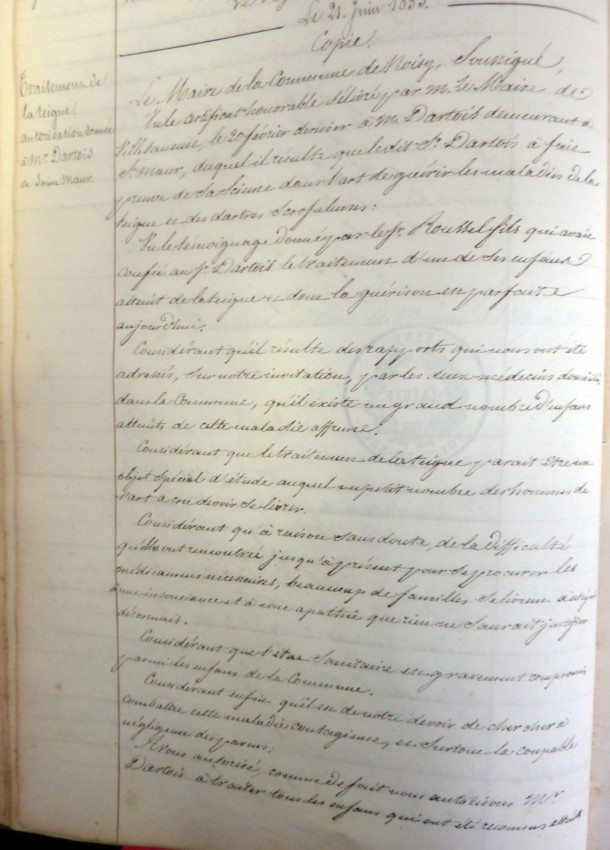 Le 21 Juin 1855.
Copie.
Traitement de
la teigne
autorisation donnée
à Mr Dartois
de Saint Maur.
Le Maire de la Commune de Noisy, Soussigné
Vu le certificat honorable délivré par M. Le Maire de
Villetaneuse, le 20 février dernier à M. Dartois demeurant à
St Maur, duquel il résulte que le dit Sr. Dartois à faire
preuve de sa Science dans l'art de guérir les maladies de la
teigne et des dartres Scrofuleuses:
Vu le témoignage donné par le Sr. Roussel fils qui avait
confié au Sr. Dartois le traitement d'un de ses enfans
atteint de la teigne et dont la guérison est parfaite
aujourd'hui.
Considérant qu'il résulte des rapports qui nous ont été
adressés, sur notre invitation, par les deux médecins
dans la Commune, qu'il existe un grand nombre d'enfans
atteints de cette maladie affreuse.
Considérant que le traitement de la teigne parait être un
objet spécial d'étude auquel un petit nombre des hommes de
l'art a cru devoir se livrer.
Considérant qu'à raison sans doute, de la difficulté
qu'elles ont rencontrée jusqu'à présent pour se procurer les
médicamens nécessaires, beaucoup de familles se livrent
à une insouciance et à une apathie que rien ne saurait justifier
désormais.
Considérant que l'état Sanitaire est gravement compromis
parmi les enfans de la Commune.
Considérant enfin qu'il est de notre devoir de chercher à
combattre cette maladie contagieuse, et surtout la coupable
négligence des parens;
Avons autorisé, comme de fait nous autorisons Mr
Dartois à traiter tous les enfans qui ont été reconnus atteints